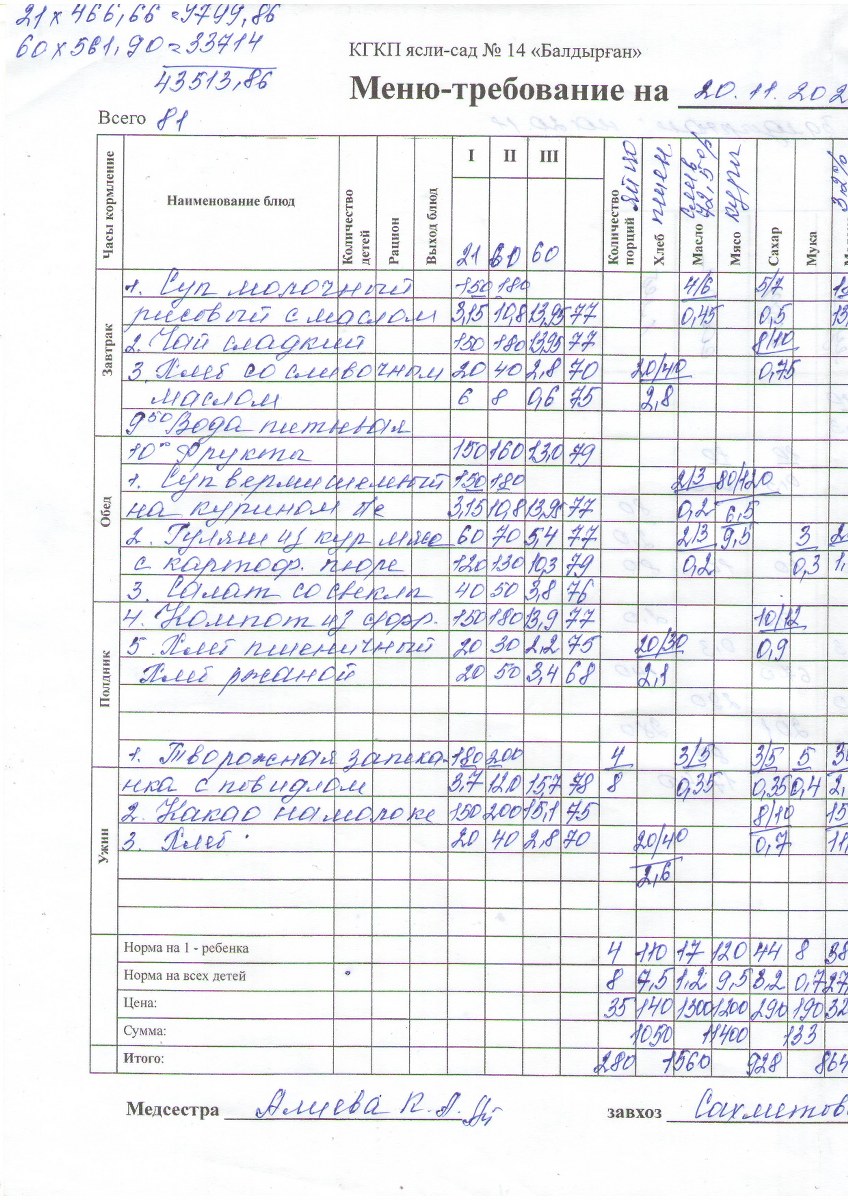 21 x 466,66 = 9799,86
60 x 561,90 = 33714
43513,86
КГКП ясли-сад № 14 «Балдырған»
Меню-требование на 20.11.202
Всего 81
Часы кормление
Наименование блюд
Количество детей
Рацион
Выход блюд
I II III
21 60 60
Количество порций яйцо
Хлеб пшен.
Масло слив 72,5
Мясо куры
Сахар
Мука
3,2%
Завтрак
1. Суп молочный 150 180 4/6 5/7
рисовый с маслом 3,15 10,8 13,95 77 0,45 0,5 13,
2. Чай сладкий 150 180 13,95 77 8/10
3. Хлеб со сливочным 20 40 2,8 70 20/40 0,75
маслом 6 8 0,6 75 2,8
9⁵⁰ Вода питьевая
Обед
10°° Фрукты 150 160 13,0 79
1. Суп вермишелевый 150 180 2/3 80/120
на курином 3,15 10,8 13,95 77 0,2 6,5
2. Гуляш из кур мяса 60 70 5,4 77 2/3 9,5 3
с картоф. пюре 120 130 10,3 79 0,2 0,3 1,
3. Салат со свеклы 40 50 3,8 76
Полдник
4. Компот из сухофр. 150 180 13,9 77 10/12
5. Хлеб пшеничный 20 30 2,2 75 20/30 0,9
Хлеб ржаной 20 50 3,4 68 2,1
1. Творожная запека- 180 200 4 3/5 3/5 5
Ужин
нка с повидлом 3,7 12,0 15,7 78 8 0,35 0,35 0,4 2,
2. Какао на молоке 150 200 15,1 75 8/10 15
3. Хлеб 20 40 2,8 70 20/40 0,7 11,
2,6
Норма на 1 - ребенка 4 110 17 120 44 8 38
Норма на всех детей 8 7,5 1,2 9,5 3,2 0,7 27
Цена: 35 140 1300 1200 290 190 32
Сумма: 1050 11400 133
Итого: 280 1560 928 864
Медсестра Алиева К. А.
завхоз Сахметов